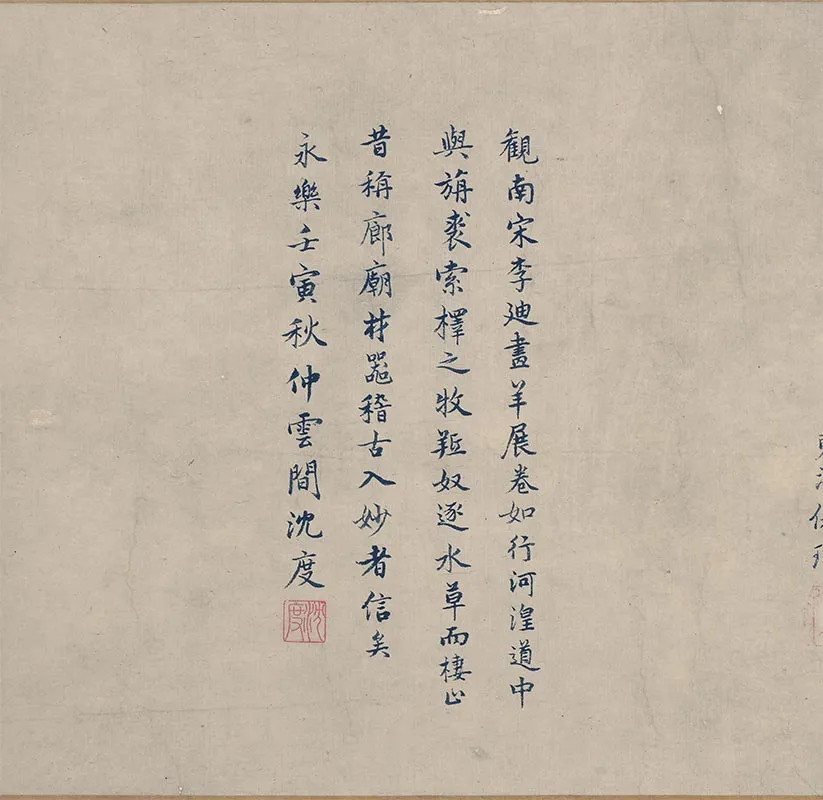 觀南宋李廸畫羊展卷如行河湟道中
與旃裘索擇之牧羝奴逐水草而棲止
昔稱廊廟材器稽古入妙者信矣
永樂壬寅秋仲雲間沈度
沈度